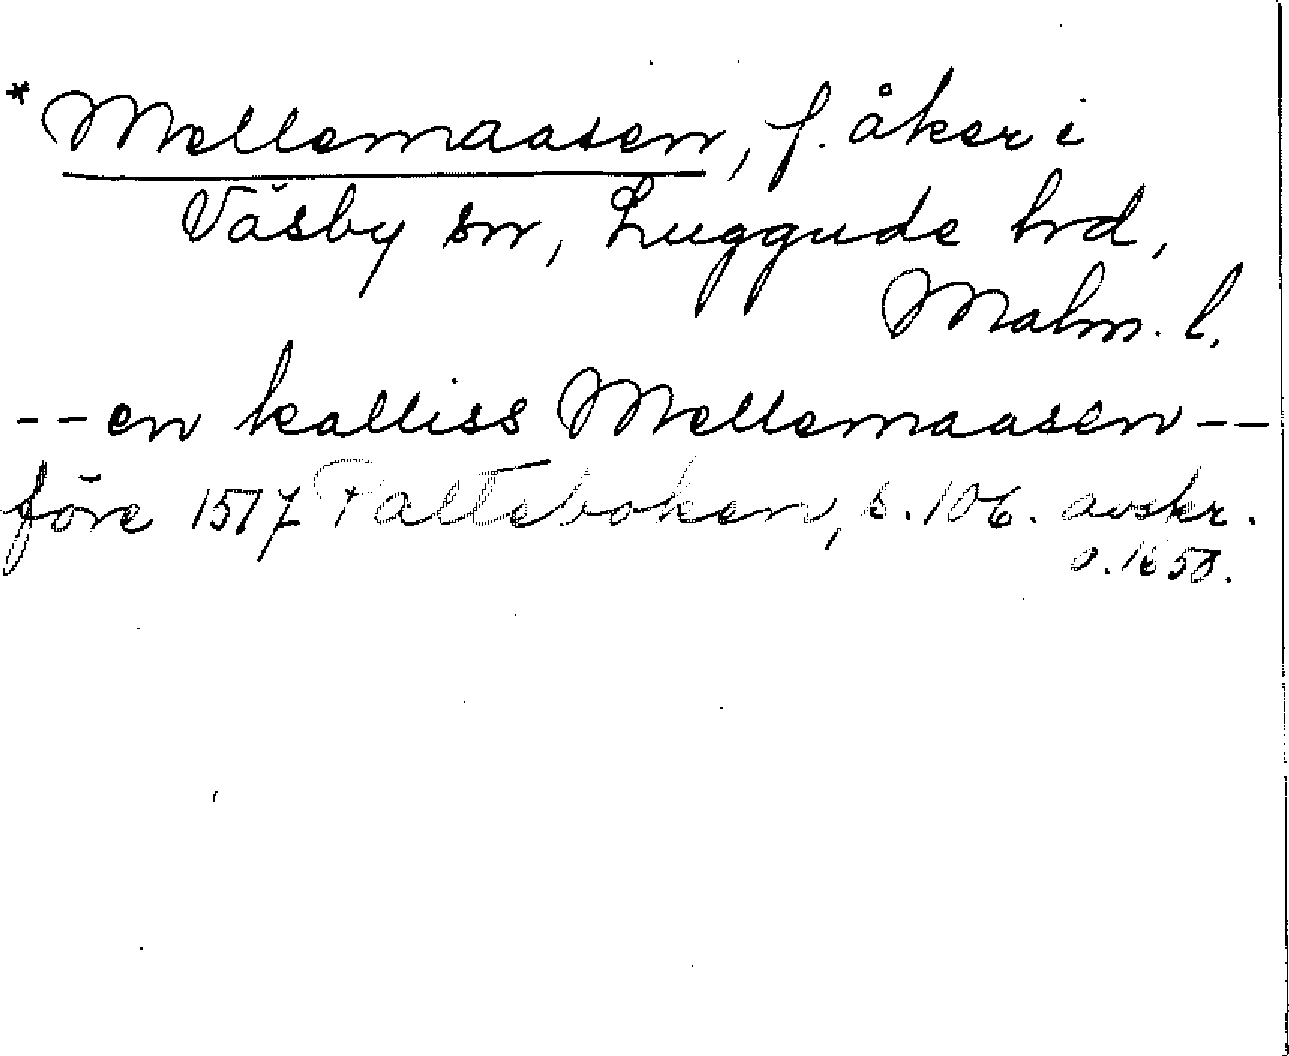 *Mellemaasen, f. åker i
Väsby sn, Luggude hd,
Malm. l.
--en kalliss Mellemaasen--
före 1517 Palteboken, s. 106. avskr.
o. 1650.